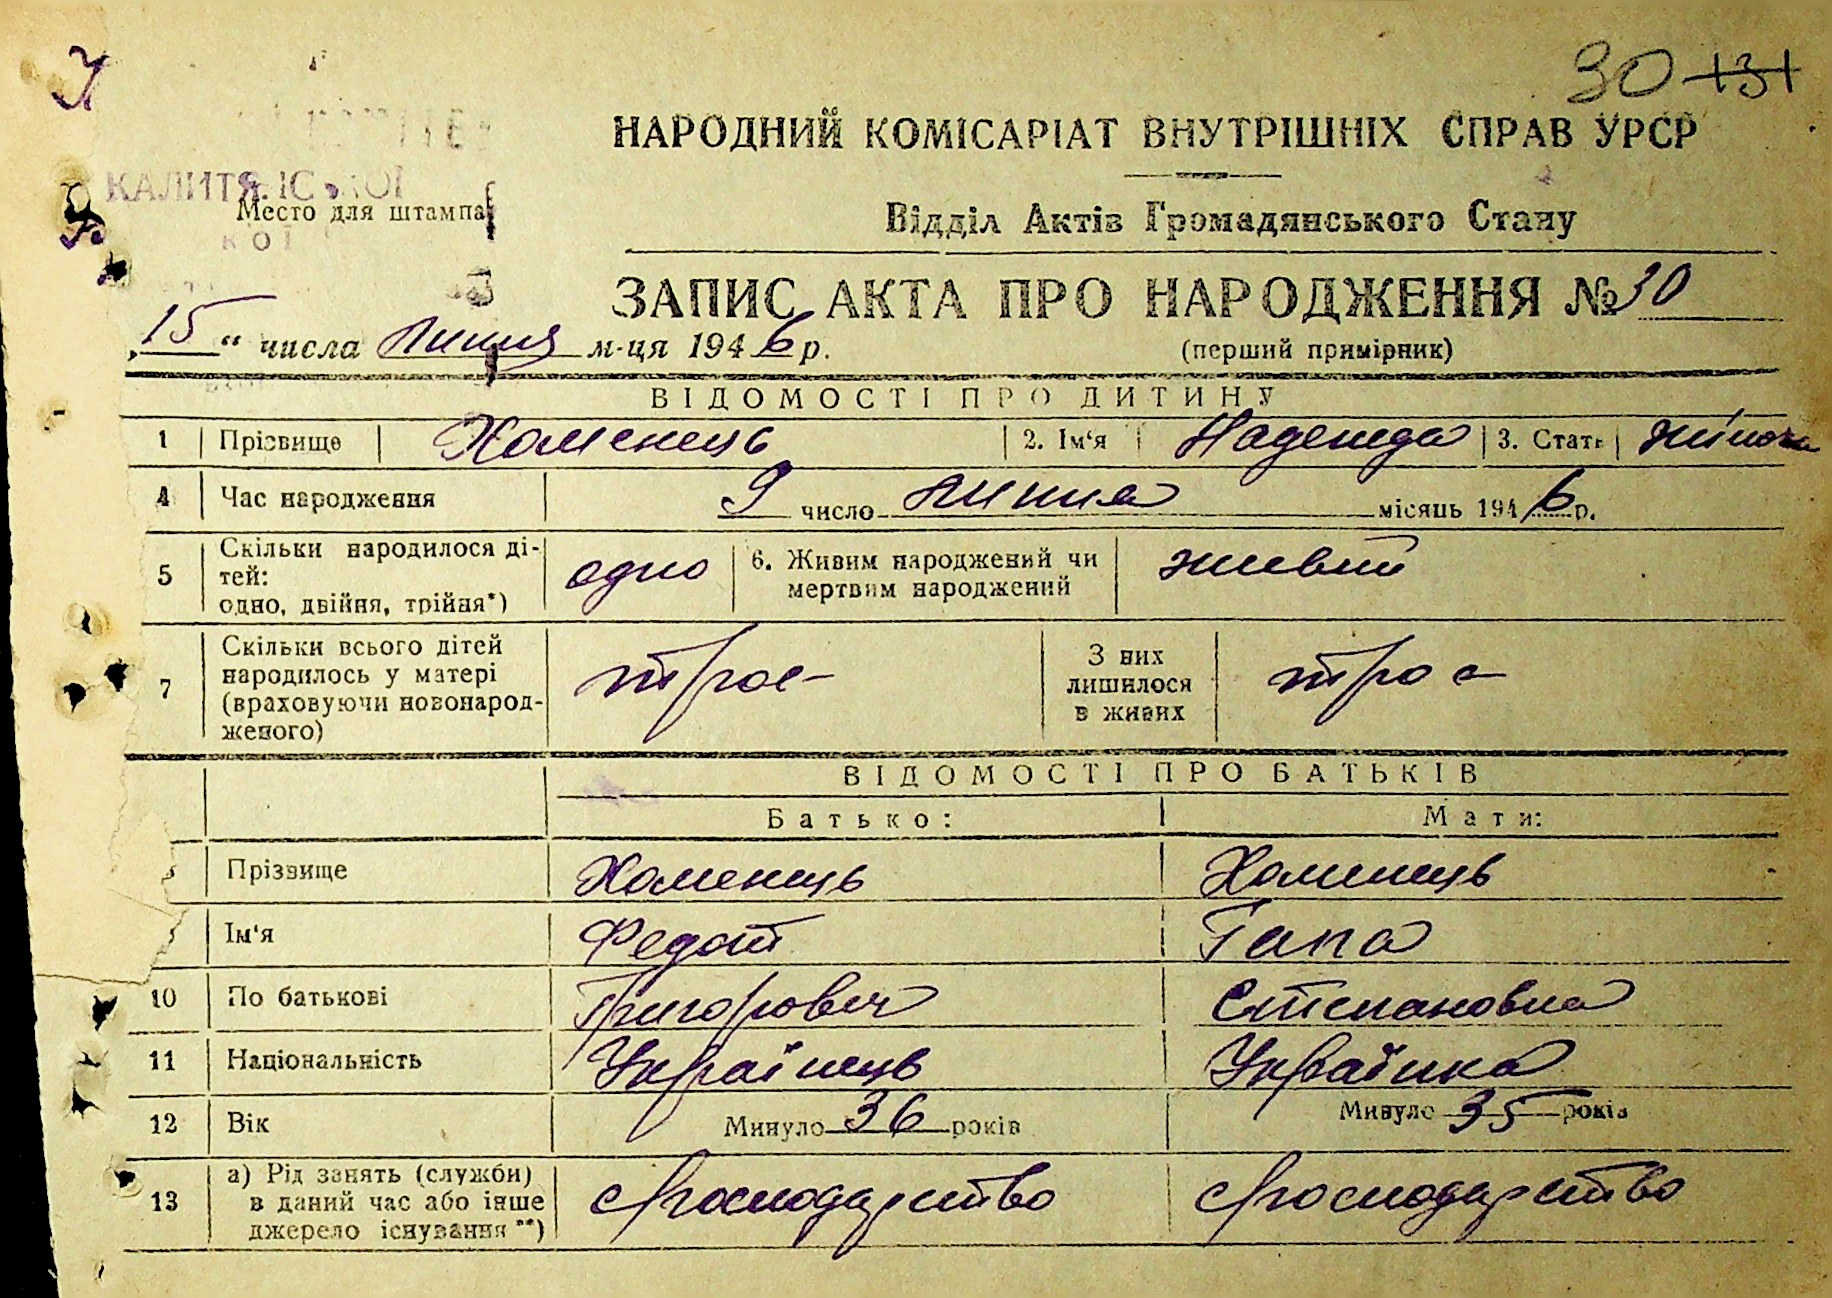 30 131
НАРОДНИЙ КОМІСАРІАТ ВНУТРІШНІХ СПРАВ УРСР
Место для штампа
Відділ Актів Громадянського Стану
ЗАПИС АКТА ПРО НАРОДЖЕННЯ № 30
„15“ числа липня м-ця 1946 р. (перший примірник)
ВІДОМОСТІ ПРО ДИТИНУ
1 Прізвище Хоменець 2. Ім'я Надежда 3. Стать жіноча
4 Час народження 9 число липня місяць 1946 р.
5 Скільки народилося ді-
тей:
одно, двійня, трійня*) одно 6. Живим народжений чи
мертвим народжений живий
7 Скільки всього дітей
народилось у матері
(враховуючи новонарод-
женого) трое З них
лишилося
в живих трое
ВІДОМОСТІ ПРО БАТЬКІВ
Батько: Мати:
Прізвище Хоменець Хоминець
Ім'я Федот Гапа
10 По батькові Григорович Степановна
11 Національність Українець Українка
12 Вік Минуло 36 років Минуло 35 років
13 а) Рід занять (служби)
в даний час або інше
джерело існування **) господарство господарство